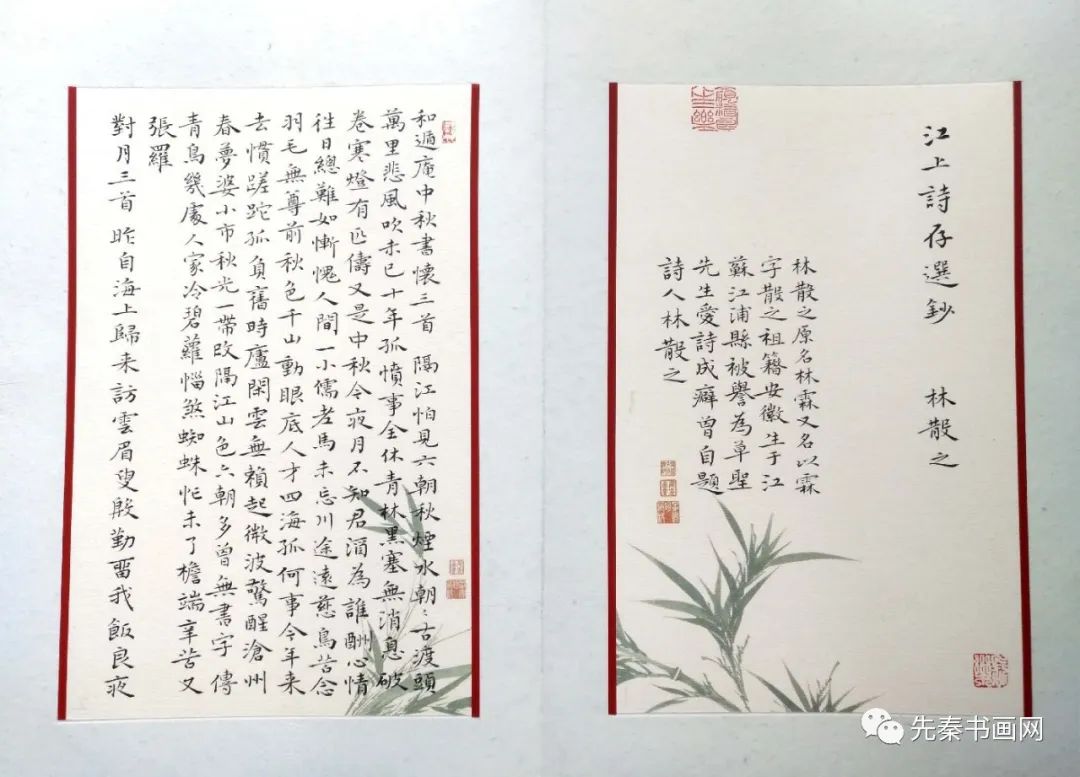 江上詩存選鈔 林散之
林散之原名林霖又名以霖
字散之祖籍安徽生于江
蘇江浦縣被譽為草聖
先生愛詩成癖曾自題
詩人林散之
和遁庵中秋書懷三首 隔江怕見六朝秋煙水朝〻古渡頭
萬里悲風吹未已十年孤憤事全休青林黑塞無消息破
卷寒燈有匹儔又是中秋今夜月不知君酒為誰酬心情
往日總難如慚愧人間一小儒老馬未忘川途遠慈烏苦念
羽毛無尊前秋色千山動眼底人才四海孤何事今年来
去慣蹉跎孤負舊時廬閑雲無賴起微波驚醒滄州
春夢婆小市秋光一帶改隔江山色六朝多曾無書字傳
青鳥幾處人家冷碧蘿惱煞蜘蛛忙未了檐端辛苦又
張羅
對月三首 昨自海上歸来訪雲眉叟殷勤留我飯良夜
先秦书画网